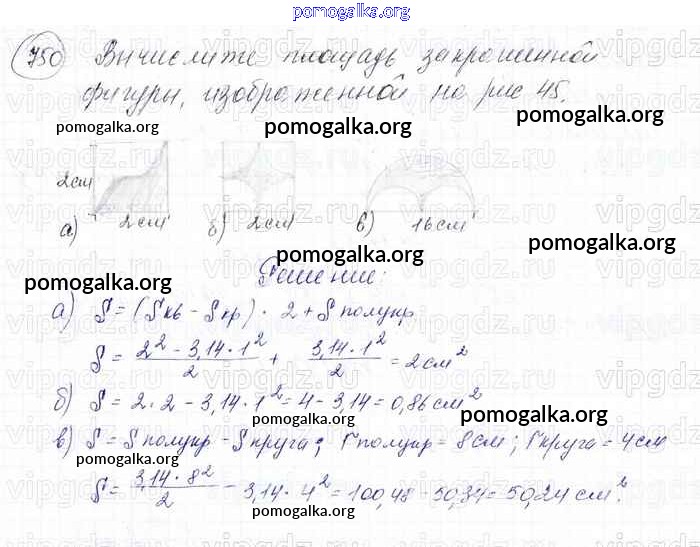 pomogalka.org
750 Вычислите площадь закрашенной
фигуры, изображенной на рис 45.
pomogalka.org pomogalka.org pomogalka.org
2см
а) 2см б) 2см в) 16см
pomogalka.org pomogalka.org
pomogalka.org
Решение:
а) S = (Sкв - Sкр) · 2 + S полукр
S = 2² - 3,14 · 1² / 2 + 3,14 · 1² / 2 = 2см²
б) S = 2 · 2 - 3,14 · 1² = 4 - 3,14 = 0,86 см²
pomogalka.org pomogalka.org
в) S = S полукр - S круга; r полукр = 8см; r круга = 4см
pomogalka.org
S = 3,14 · 8² / 2 - 3,14 · 4² = 100,48 - 50,24 = 50,24 см².
pomogalka.org pomogalka.org
vipgdz.ru